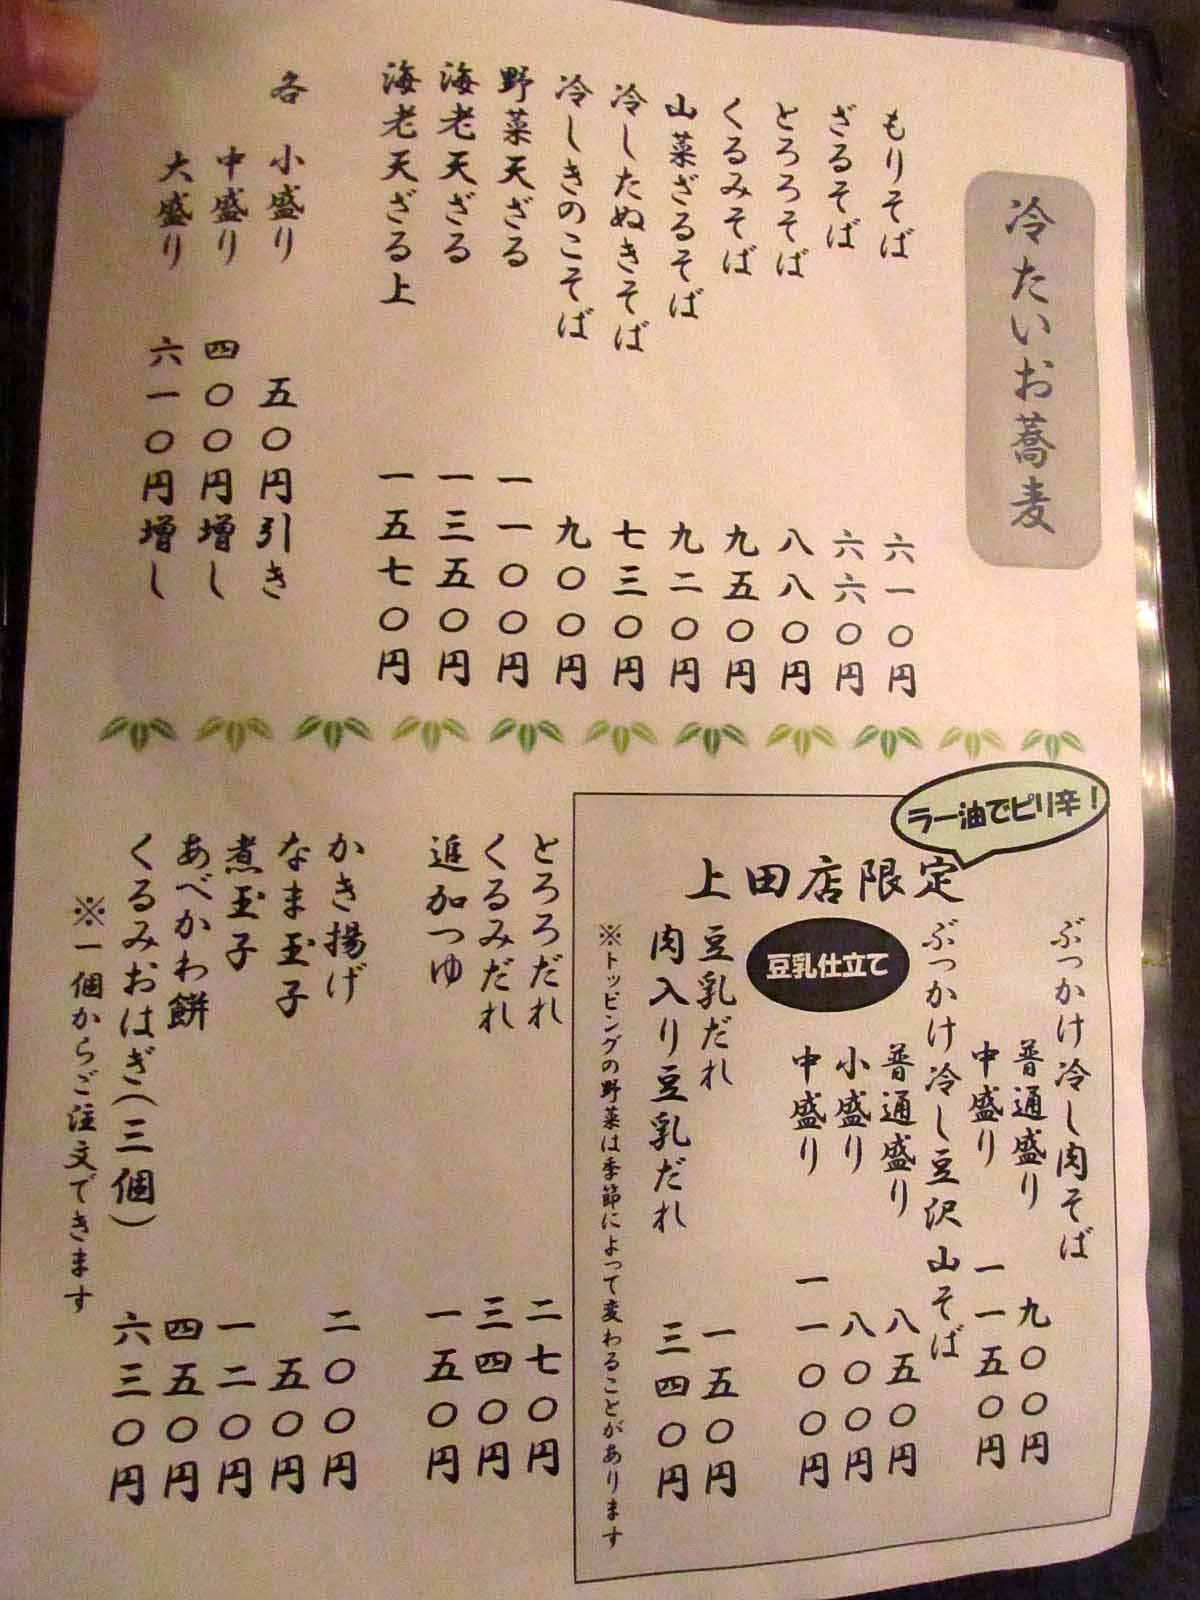 冷たいお蕎麦
もりそば 六一〇円
ざるそば 六六〇円
とろろそば 八八〇円
くるみそば 九五〇円
山菜ざるそば 九二〇円
冷したぬきそば 七三〇円
冷しきのこそば 九〇〇円
野菜天ざる 一一〇〇円
海老天ざる 一三五〇円
海老天ざる上 一五七〇円
各 小盛り 五〇円引き
中盛り 四〇〇円増し
大盛り 六一〇円増し
ラー油でピリ辛！
上田店限定
ぶっかけ冷し肉そば
普通盛り 九〇〇円
中盛り 一一五〇円
ぶっかけ冷し豆沢山そば
豆乳仕立て
普通盛り 八五〇円
小盛り 八〇〇円
中盛り 一一〇〇円
豆乳だれ 一五〇円
肉入り豆乳だれ 三四〇円
※トッピングの野菜は季節によって変わることがあります
とろろだれ 二七〇円
くるみだれ 三四〇円
追加つゆ 一五〇円
かき揚げ 二〇〇円
なま玉子 五〇円
煮玉子 一二〇円
あべかわ餅 四五〇円
くるみおはぎ(三個) 六三〇円
※一個からご注文できます